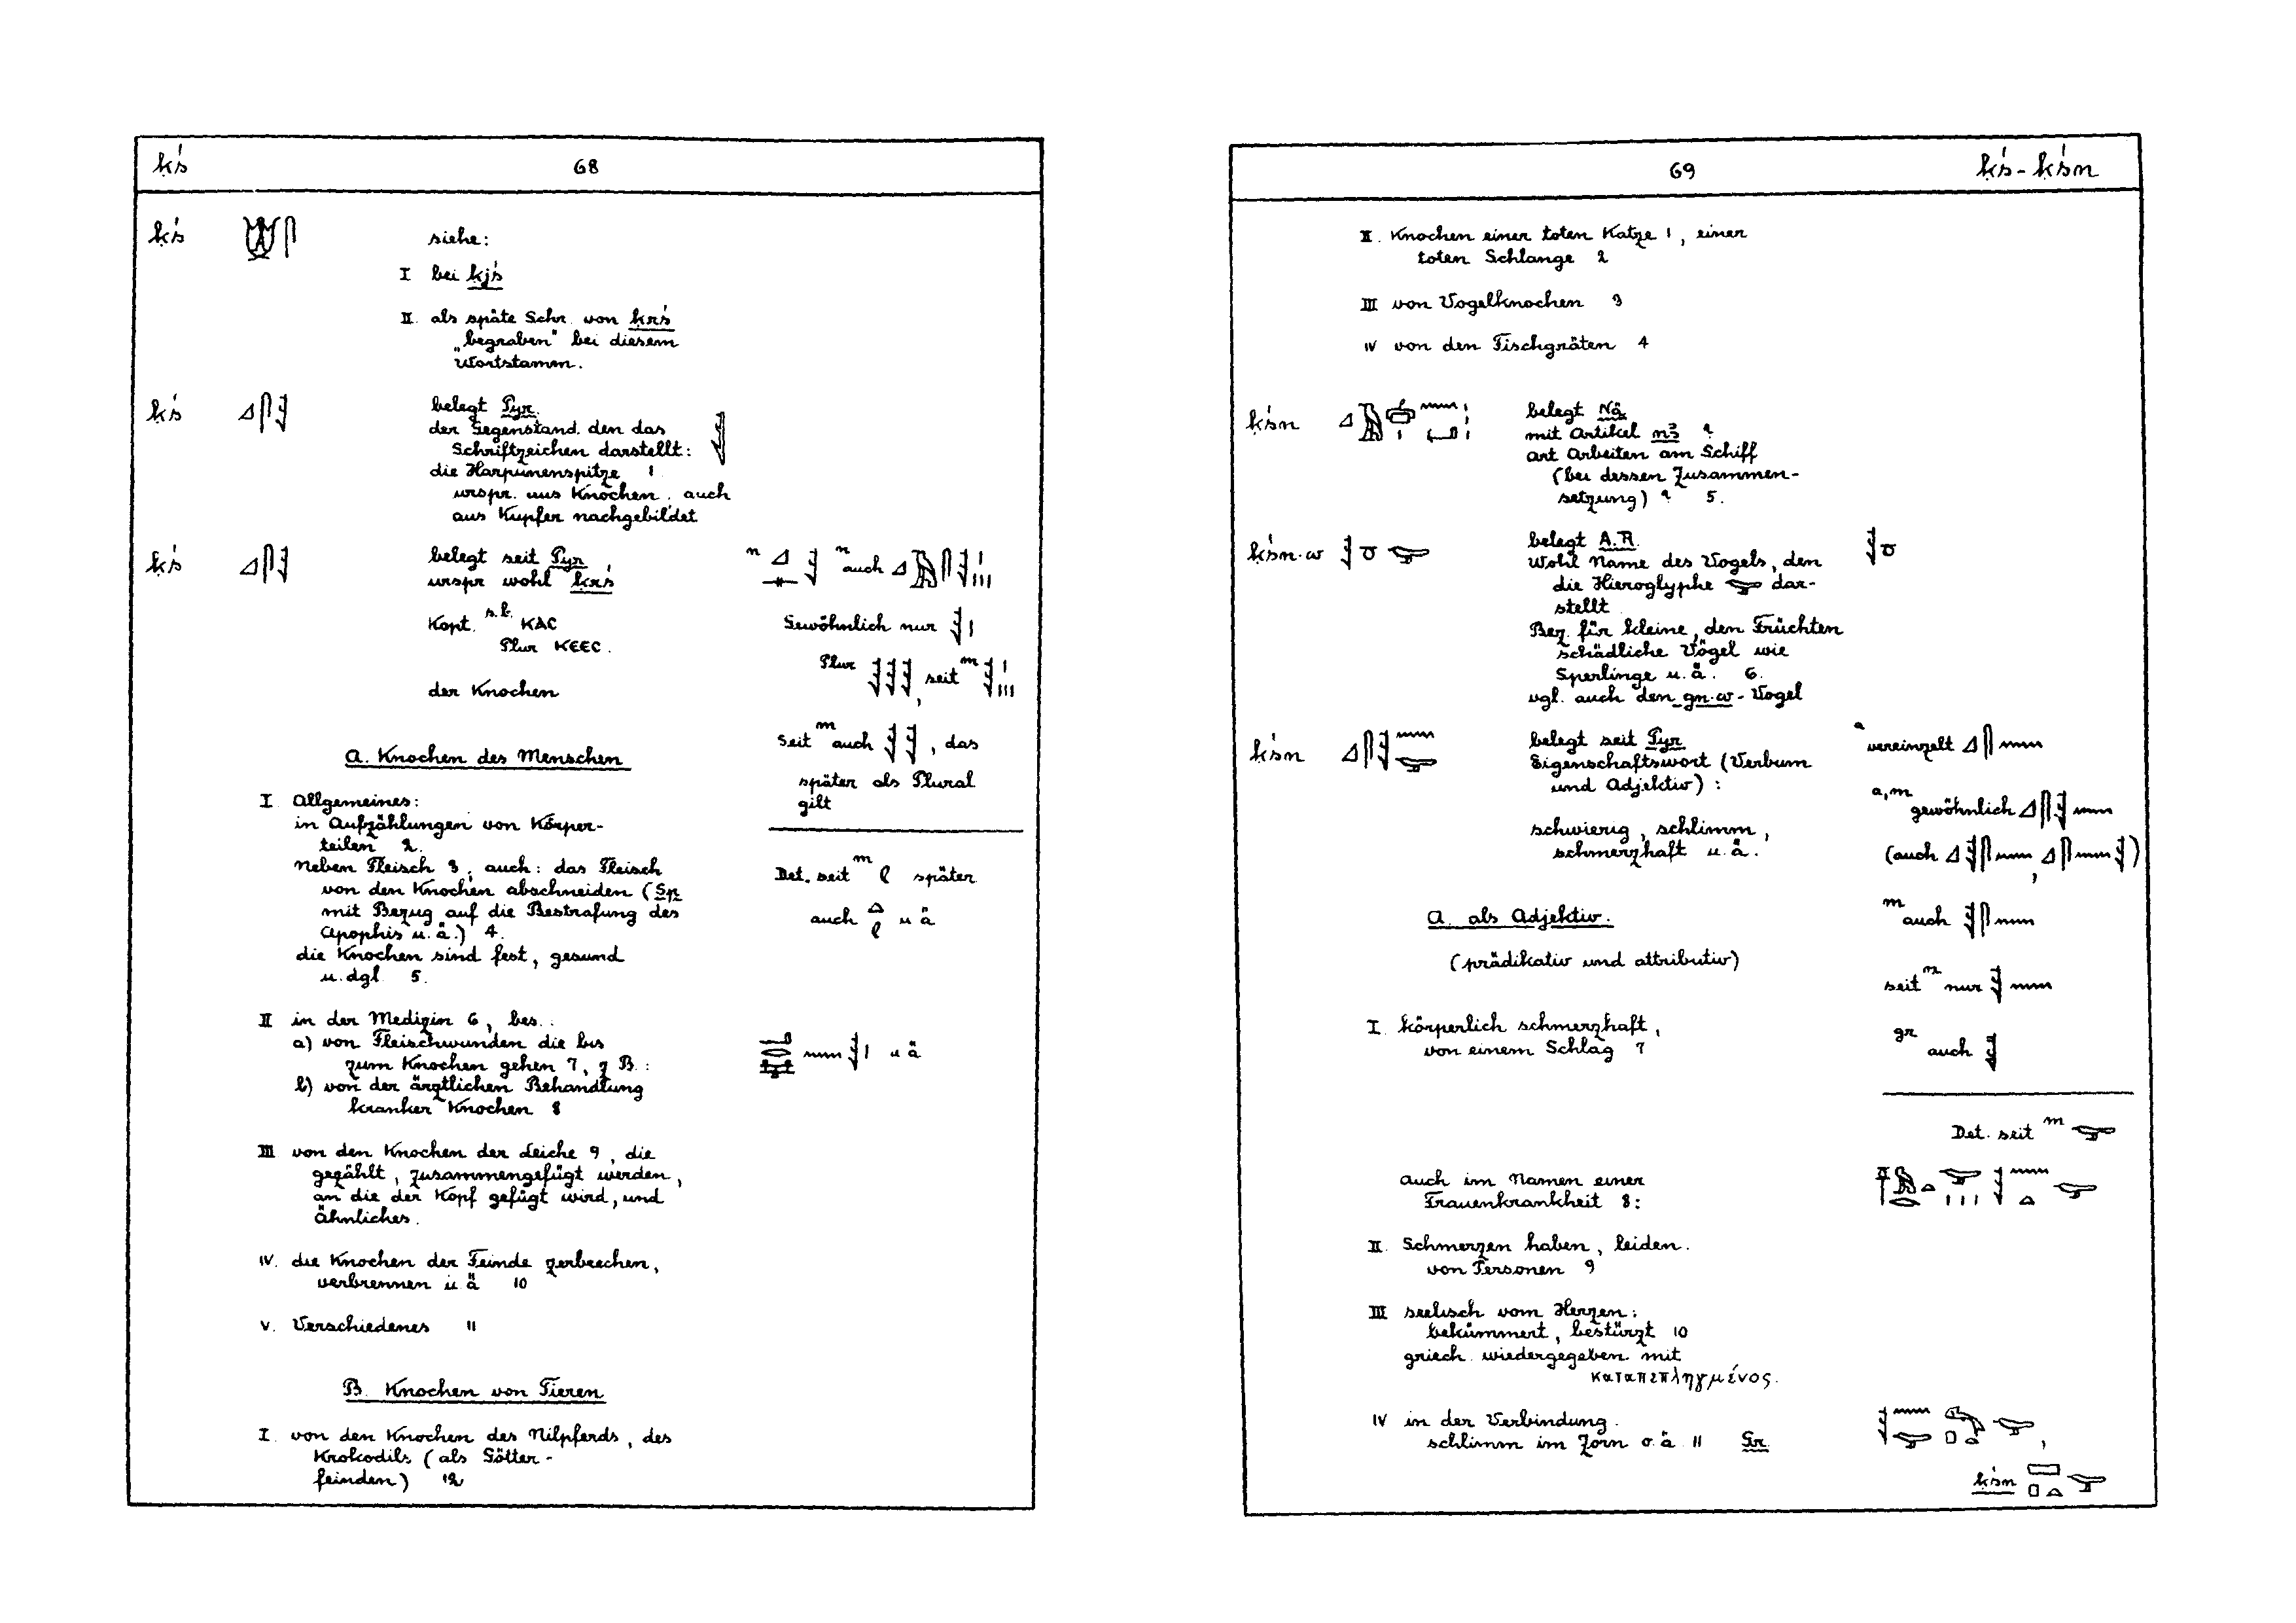 ḳś 68
ḳś siehe:
I bei ḳjś
II. als späte Schr. von ḳrś
„begraben" bei diesem
Wortstamm.
ḳś belegt Pyr.
der Gegenstand, den das
Schriftzeichen darstellt:
die Harpunenspitze 1
urspr. aus Knochen, auch
aus Kupfer nachgebildet
ḳś belegt seit Pyr
urspr wohl ḳrś
Kopt. s.b. ΚΑC
Plur ΚΕΕC.
der Knochen
n n auch
Gewöhnlich nur
Plur , seit m
Seit m auch , das
später als Plural
gilt
Det. seit m später
auch u ä
A. Knochen des Menschen
I Allgemeines:
in Aufzählungen von Körper-
teilen 2.
neben Fleisch 3, auch: das Fleisch
von den Knochen abschneiden (Sp
mit Bezug auf die Bestrafung des
Apophis u. ä.) 4.
die Knochen sind fest, gesund
u. dgl. 5.
II in der Medizin 6, bes.:
a) von Fleischwunden die bis
zum Knochen gehen 7, z B.: u ä
b) von der ärztlichen Behandlung
kranker Knochen 8
III von den Knochen der Leiche 9, die
gezählt, zusammengefügt werden,
an die der Kopf gefügt wird, und
ähnliches.
IV. die Knochen der Feinde zerbrechen,
verbrennen u ä 10
V. Verschiedenes 11
B. Knochen von Tieren
I. von den Knochen des Nilpferds, des
Krokodils (als Götter-
feinden) 12
69 ḳś - ḳśn
II. Knochen einer toten Katze 1, einer
toten Schlange 2
III von Vogelknochen 3
IV von den Fischgräten 4
ḳśn belegt Nä.
mit Artikel nꜣ ?
Art Arbeiten am Schiff
(bei dessen Zusammen-
setzung) ? 5.
ḳśn.w belegt A.R.
Wohl Name des Vogels, den
die Hieroglyphe dar-
stellt
Bez. für kleine, den Früchten
schädliche Vögel wie
Sperlinge u. ä. 6.
vgl. auch den gn.w - Vogel
ḳśn belegt seit Pyr
Eigenschaftswort (Verbum
und Adjektiv) :
schwierig, schlimm,
schmerzhaft u. ä.
a vereinzelt
a, m gewöhnlich
(auch , )
m auch
seit n nur
gr auch
Det. seit m
A. als Adjektiv.
(prädikativ und attributiv)
I. körperlich schmerzhaft,
von einem Schlag 7
auch im Namen einer
Frauenkrankheit 8:
II. Schmerzen haben, leiden.
von Personen 9
III seelisch vom Herzen:
bekümmert, bestürzt 10
griech. wiedergegeben mit
καταπεπληγμένος.
IV in der Verbindung.
schlimm im Zorn o. ä 11 Gr. ,
ḳśn